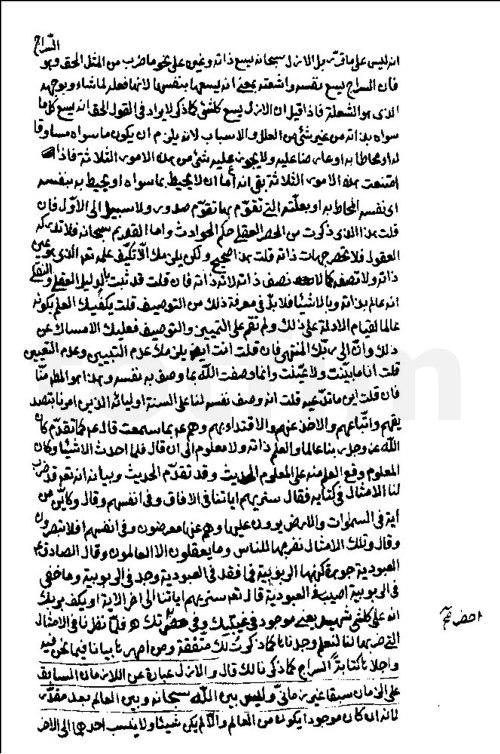 السراج
انه ليس على ما قرر بل الازل سبحانه يسع ذاته وغيره على نحو ما ضرب من المثل الحق وهو
فان السراج يسع نفسه واشعته بمعنى انه يسعها بنفسها لانها فعله لما شاء وبوجهه
الذى هو الشعلة فاذا قيل ان الازل يسع كلشئ كما ذكر لا يراد فى القول الحق انه يسع كل ما
سواه بذاته من غير شئ من العلل والاسباب لانه يلزم ان يكون ما سواه مساوقا
له او محاطا به او عارضا عليه ولا يجوز عليه شئ من هذه الامور الثلاثة فاذا
امتنعت هذه الامور الثلاثة بقى انه أما ان لا يحيط بما سواه او يحيط به بنفسه
اى نفسه المحاط به او بعلته التى تقوم بها تقوم صدور ولا سبيل الى الاول فان
قلت هذا الذى ذكرت من الحصر العقلى حكم الحوادث واما القديم سبحانه فلا تدركه
العقول فلا تحصر جهات ذاته قلت هذا صحيح ولكن يلزمك ألا تكيف علمه نعم الذى هو عين
ذاته ولا تصفه كما لا تصف ذاته لانه ذاته فان قلت قد ثبت بالدليل العقلى والنقلى
انه عالم بذاته وبالاشياء فلابد فى معرفة ذلك من التوصيف قلت يكفيك العلم بكونه
عالما لقيام الادلة على ذلك ولم تقم على التبيين والتوصيف فعليك الامساك عن
ذلك وان الى ربك المنتهى فان قلت انت ايضا يلزمك عدم التبيين وعدم التعيين
قلت انا ما بينت ولا عينت وانما وصفت الله بما وصف به نفسه وهذا هو المطلوب منا
فان قلت اين ما تدعيه قلت انه وصف نفسه لنا على السنة اوليائه الذين امرنا بتصد
يقهم واتباعهم والاخذ عنهم والاقتداء بهم وهو نعم بما سمعت قال عم كما تقدم كان
الله عز وجل ربنا عالما والعلم ذاته ولا معلوم الى ان قال فلما احدث الاشياء وكان
المعلوم وقع العلم منه على المعلوم الحديث وقد تقدم الحديث وبيانه انه تعم قد ضرب
لنا الامثال فى كتابه فقال سنريهم اياتنا فى الافاق وفى انفسهم وقال وكاين من
آية فى السموات والارض يمرون عليها وهم عنها معرضون وفى انفسهم افلا تبصرون
وقال وتلك الامثال نضربها للناس وما يعقلها الا العالمون وقال الصادق عم
العبودية جوهرة كنهها الربوبية فما فقد فى العبودية وجد فى الربوبية وما خفى
فى الربوبية اصيب فى العبودية قال تعم سنريهم اياتنا الى اخر الاية او لم يكف بربك
انه على كلشئ شهيد يعنى موجود فى غيبتك وفى حضرتك ه فلما نظرنا فى الامثال
التى ضربها لنا لنعلم وجدناها كما ذكرت لك متفقة ومن اجهرها بيانا فيما نحن فيه
واجلاها كتابة السراج كما ذكرنا لك قال والازل عبارة عن اللازمان السابق
على الزمان سبقا غير زمانى وليس بين الله سبحانه وبين العالم بعد مقدر
لانه ان كان موجودا يكون من العالم والا لم يكن شيئا ولا ينسب احدهما الى الاخر